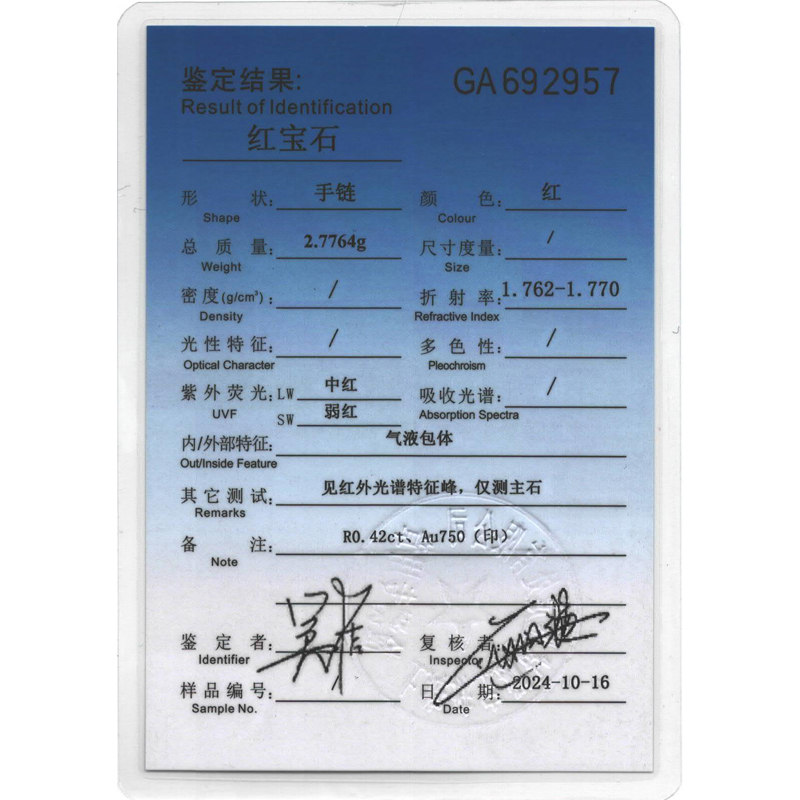 鉴定结果: GA692957
Result of Identification
红宝石
形 状: 手链 颜 色: 红
Shape Colour
总 质 量: 2.7764g 尺寸度量: /
Weight Size
密度(g/cm³): / 折 射 率: 1.762-1.770
Density Refractive Index
光性特征: / 多 色 性: /
Optical Character Pleochroism
紫外荧光: LW 中红 吸收光谱: /
UVF SW 弱红 Absorption Spectra
内/外部特征: 气液包体
Out/Inside Feature
其它测试: 见红外光谱特征峰, 仅测主石
Remarks
备 注: R0.42ct、Au750（印）
Note
鉴 定 者: 复 核 者:
Identifier Inspector
样品编号: 日 期: 2024-10-16
Sample No. Date